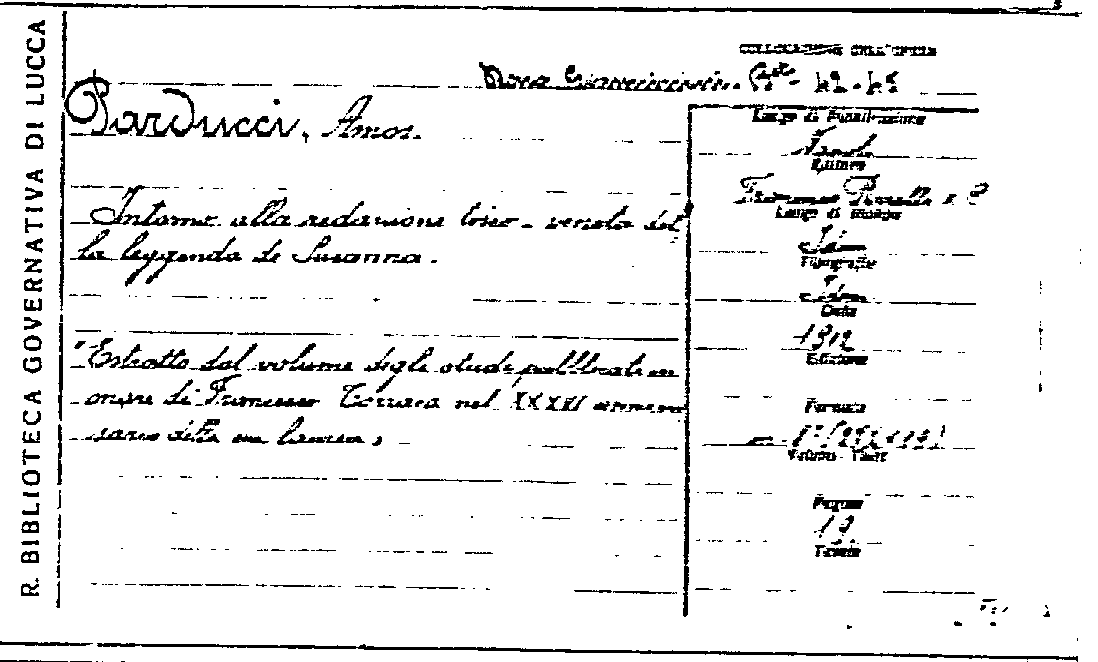 R. BIBLIOTECA GOVERNATIVA DI LUCCA
COLLOCAZIONE DELL'OPERA
Parducci, Amos.
Intorno alla redazione tosco-veneta del
la leggenda di Susanna.
"Estratto dal volume degli studi pubblicati in
onore di Francesco Torraca nel XXXVI anniver
sario della sua laurea"
Luogo di Pubblicazione
Napoli
Editore
Francesco Perrella e C.
Luogo di Stampa
Idem
Tipografia
Idem
Data
1912
Edizione
Formato
8°
Volume - Tomo
Pagine
19
Tavole